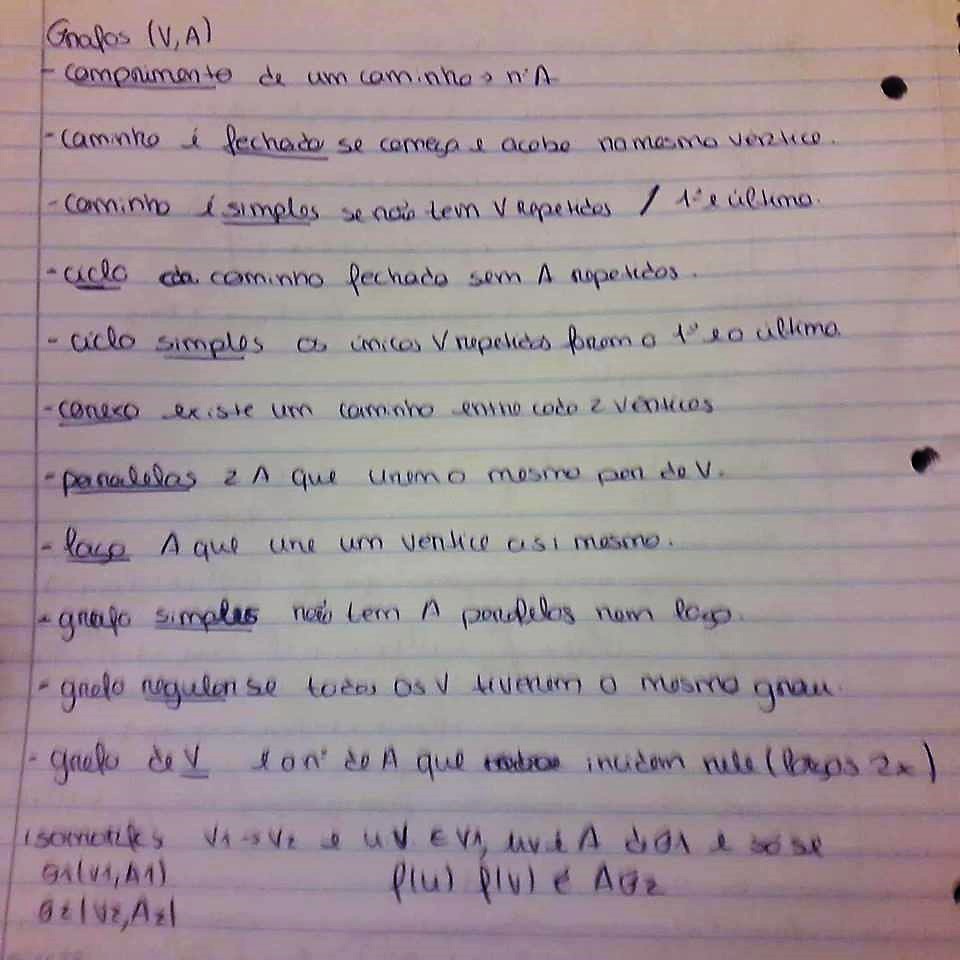 Grafos (V, A)
- comprimento de um caminho → nº A
- caminho é fechado se começa e acaba no mesmo vértice.
- caminho é simples se não tem V repetidos / 1º e último.
- ciclo caminho fechado sem A repetidos.
- ciclo simples os únicos V repetidos forem o 1º e o último
- conexo existe um caminho entre cada 2 vértices
- paralelas 2 A que unem o mesmo par de V.
- laço A que une um vértice a si mesmo.
- grafo simples não tem A paralelas nem laço.
- grafo regular se todos os V tiverem o mesmo grau.
- grafo de V é o nº de A que incidem nele (laços 2x)
V1 → V2 e u V ∈ V1, uv é A d G1 e só se
G1(V1, A1) f(u) f(v) é A G2
G2(V2, A2)